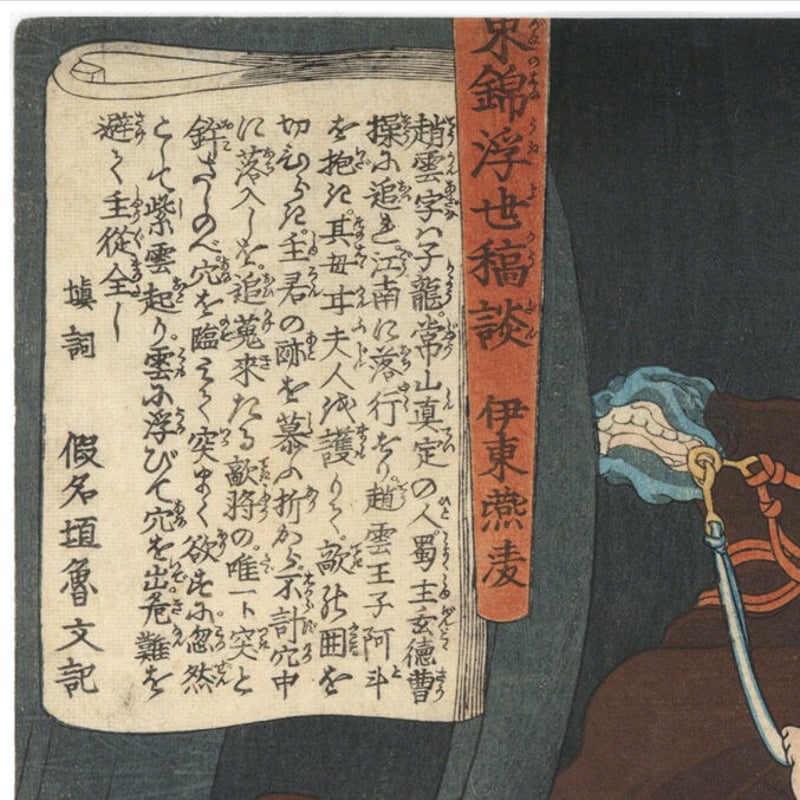 東錦浮世稿談 伊東燕凌
趙雲字ハ子龍。常山真定の人。蜀主玄徳曹
操に追れ。江南に落行をり。趙雲王子阿斗
を抱き。其母甘夫人を護りて。敵の囲を
切ひらき。主君の跡を慕ふ折から。不計穴中
に落入しを。追蒐来たる敵将の。唯一ト突と
鉾さしのべ。穴を臨えて突まく欲せに忽然
として紫雲起り。雲に浮びて穴を出危難を
避て主従全し
填詞
假名垣魯文記